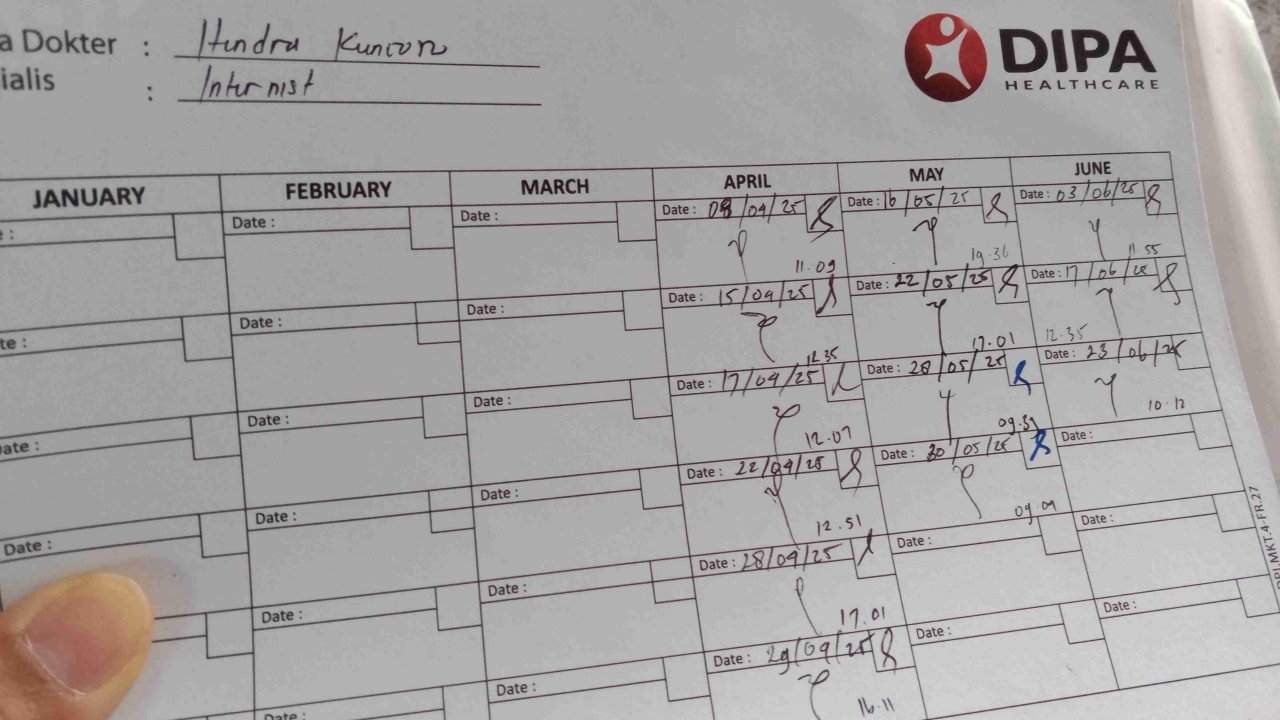 a Dokter : Hendra Kuncoro
ialis : Internist
DIPA
HEALTHCARE
JANUARY FEBRUARY MARCH APRIL MAY JUNE
: Date : Date : Date : 08/04/25 Date : 16/05/25 Date : 03/06/25
11.09 19.36 11.55
te : Date : Date : Date : 15/04/25 Date : 22/05/25 Date : 17/06/25
12.35 17.01 12.35
ate : Date : Date : Date : 17/04/25 Date : 28/05/25 Date : 23/06/25
12.07 10.12
Date : Date : Date : Date : 22/04/25 Date : 30/05/25 Date :
12.51 09.09
Date : Date : Date : 28/04/25 Date : Date :
17.01
Date : Date : Date : 29/04/25 Date : Date :
16.11
MKT.4-FR.27